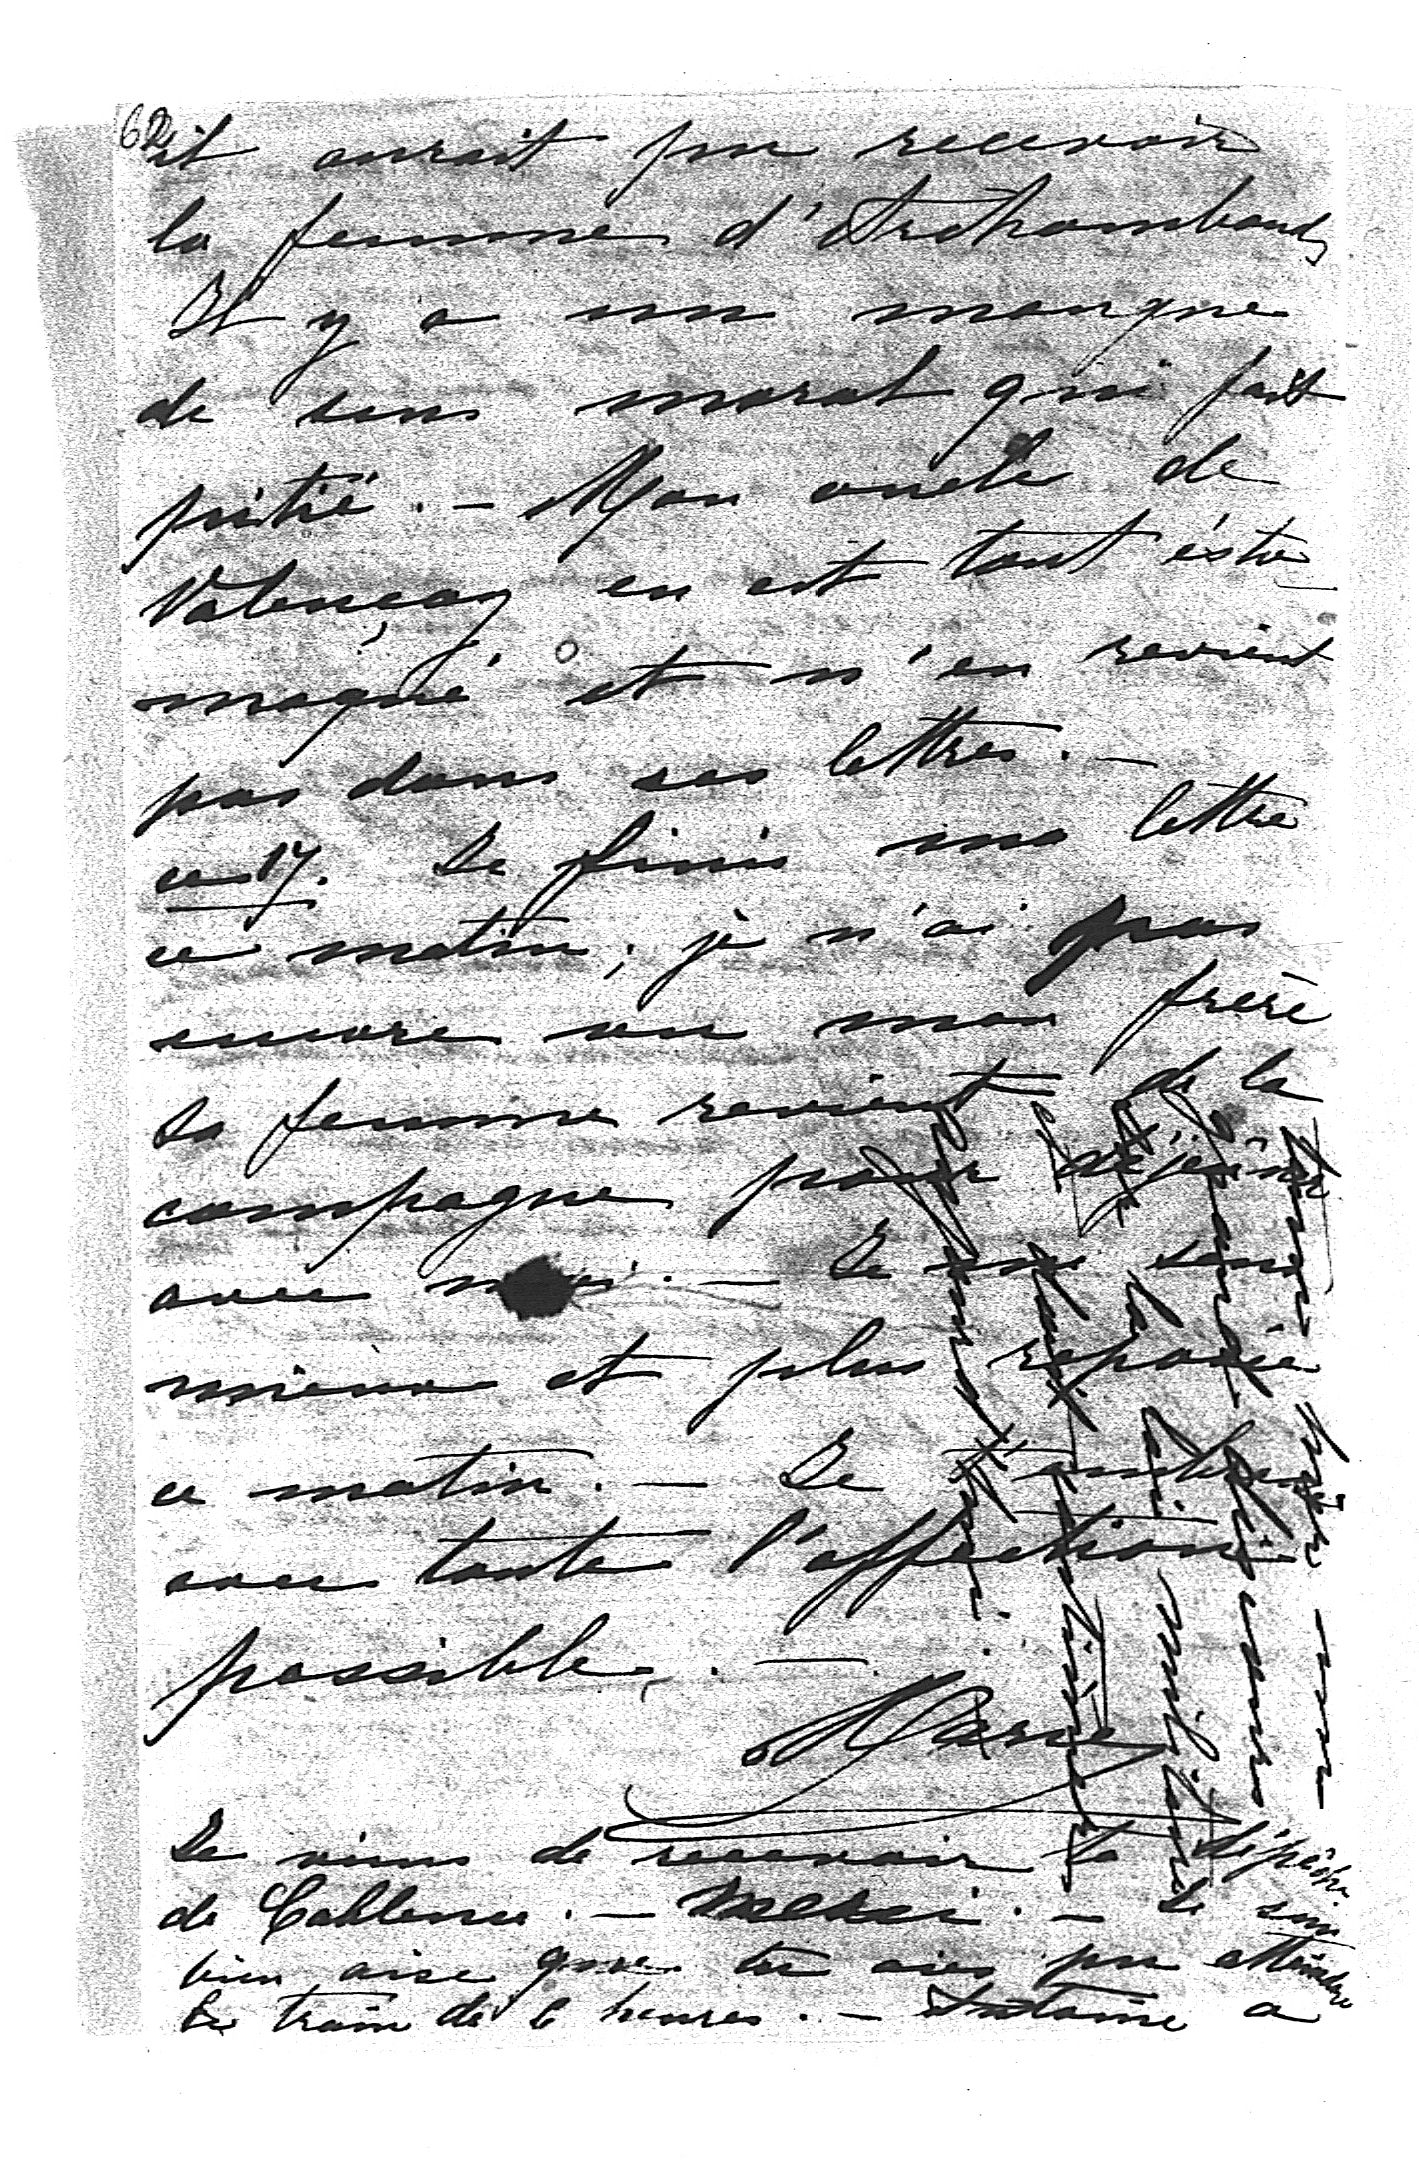 62
il aurait pu recevoir
la femme d'Archambaud
Il y a un manque
de sens moral qui fait
pitié. — Mon oncle de
Valençay en est tout esto
maqué et n'en revient
pas dans ses lettres. —
ce 17. Je finis ma lettre
ce matin; je n'ai pas
encore vu mon frère
sa femme revient de la
campagne pour déjeuner
avec moi. — Je me sens
mieux et plus reposée
ce matin. — Je t'embrasse
avec toute l'affection
possible. —
Marie
Je viens de recevoir ta dépêche
de Coblence. — Merci. — Je suis
bien aise que tu aies pu atteindre
le train de 6 heures. — Antoine a